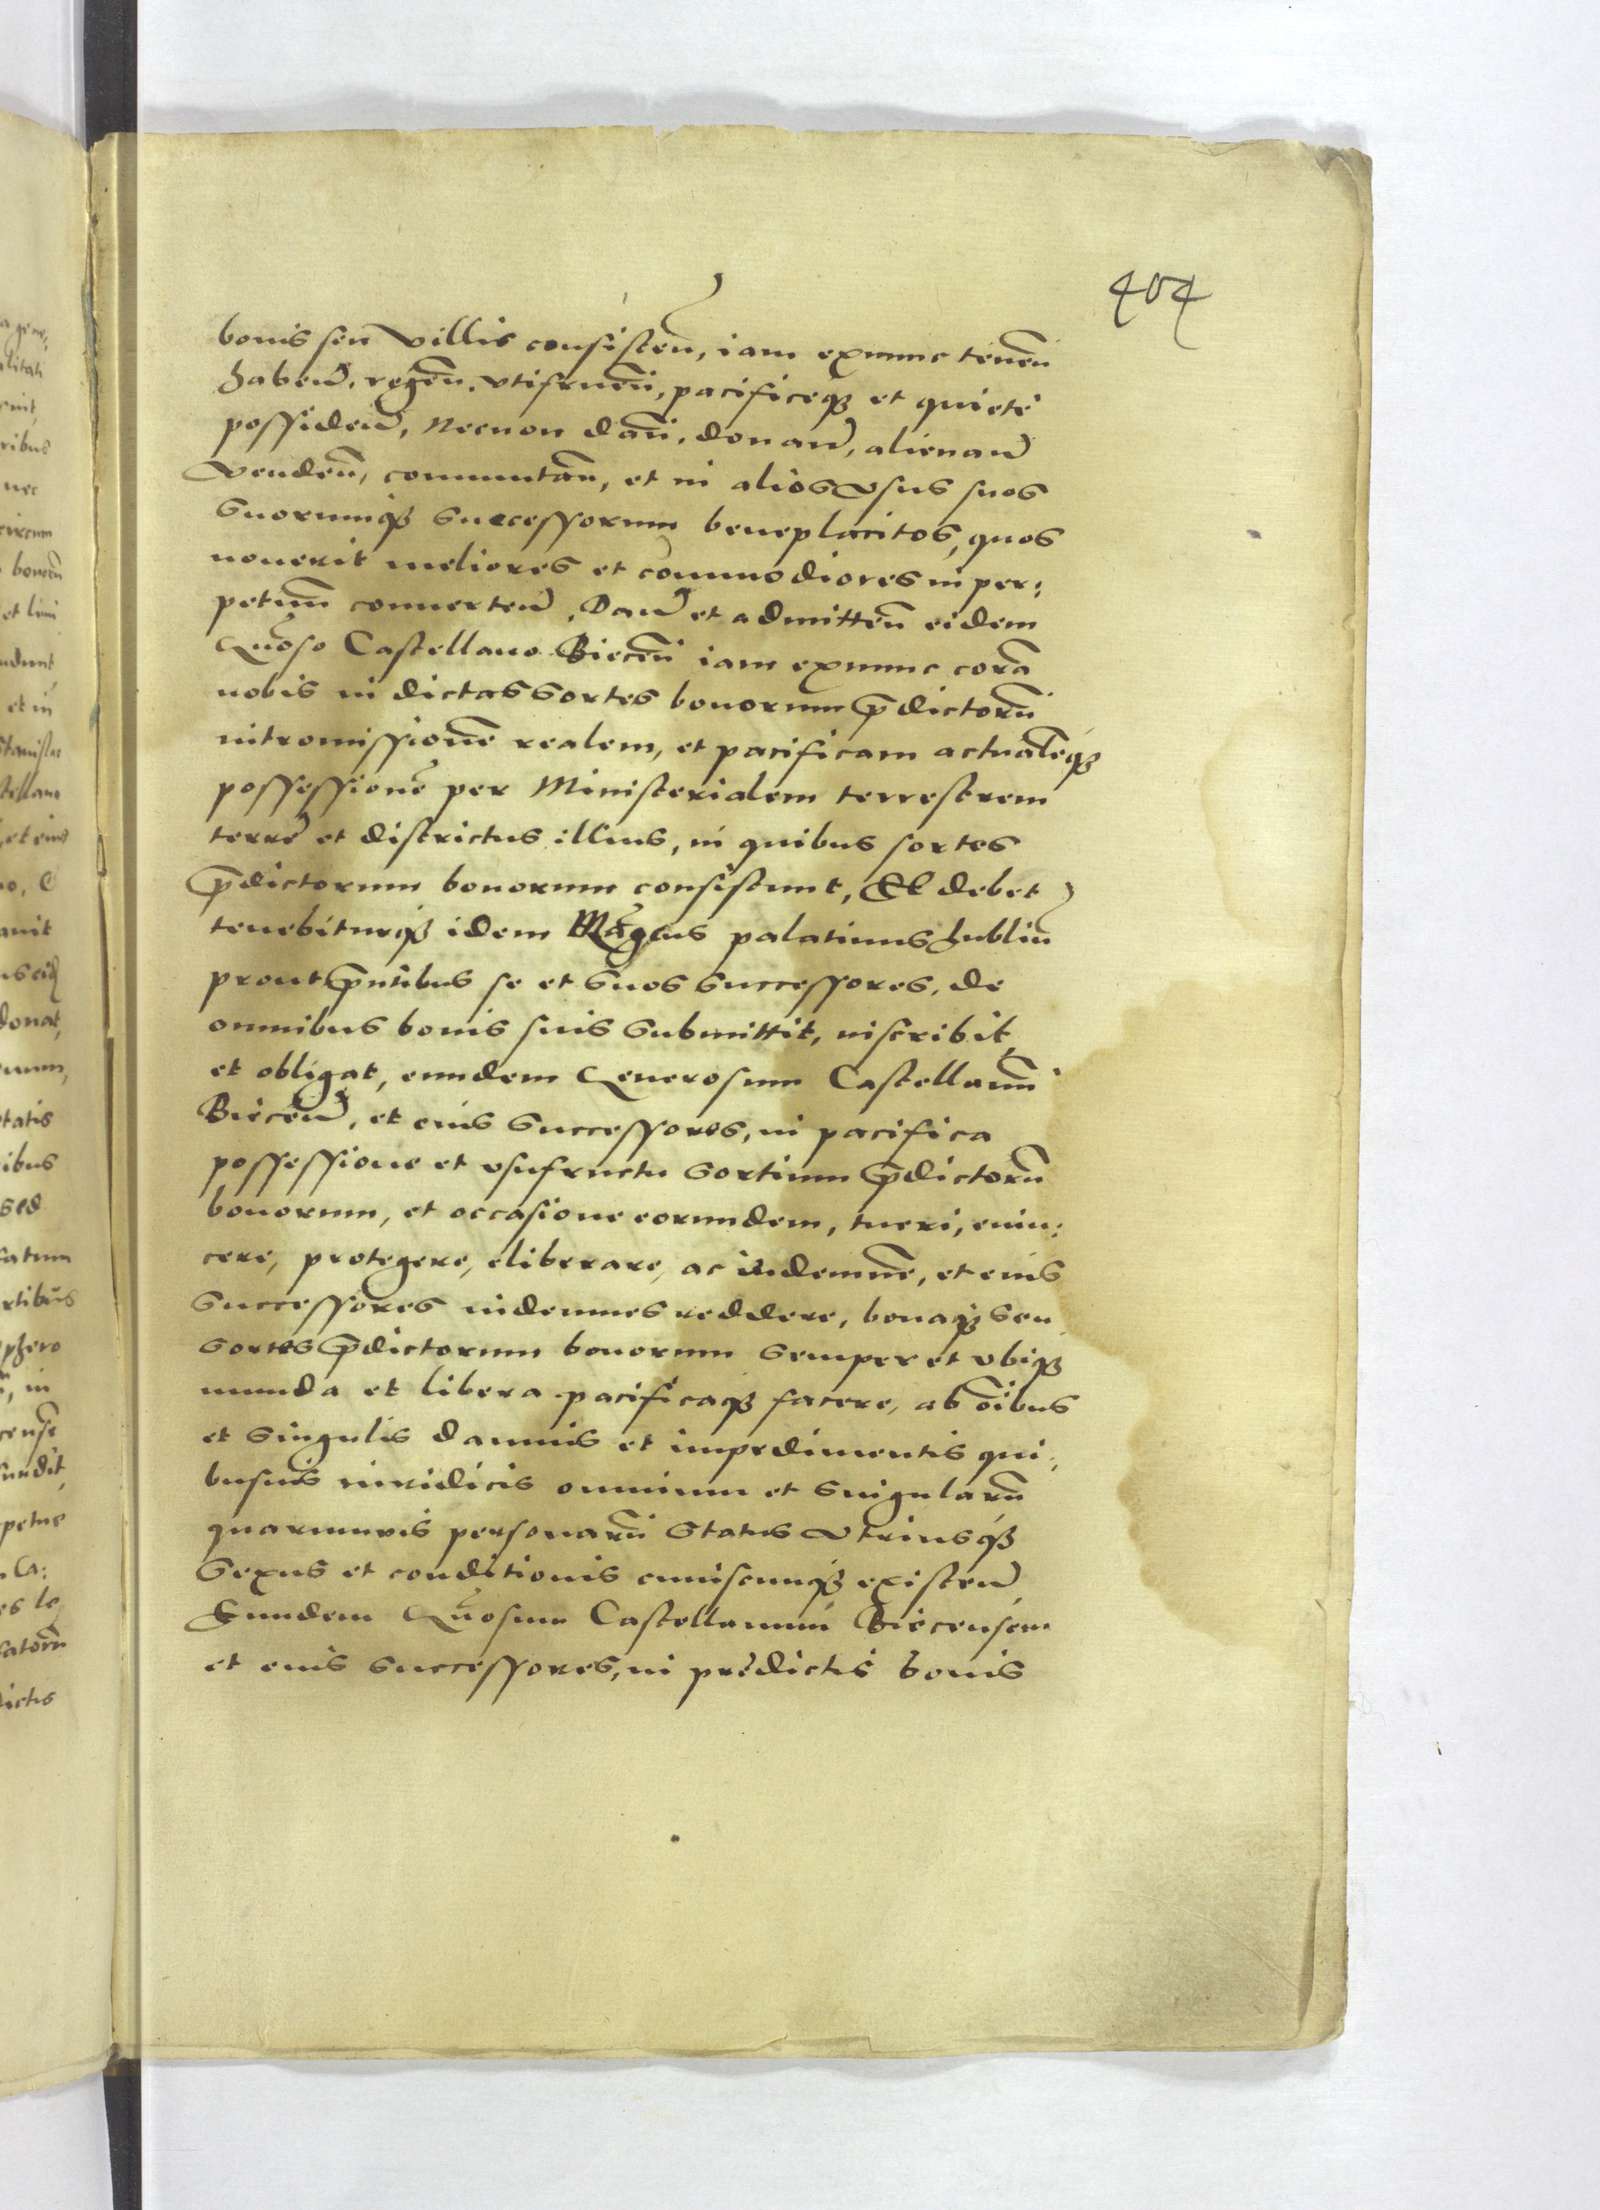 404
bonis seu villis consisteñ, iam exnunc teneñ
habeñ, regeñ, vtifrueñ, pacificeq3 et quiete
possideñ, necnon dañ, donañ, alienañ
vendeñ, commutañ, et in alios vsus suos
suorumq3 successorum beneplacitos, quos
nouerit meliores et commodiores in per:
petuũ conuerteñ. Dañ et admitteñ eidem
Gñoso Castellano Bieceñ iam exnunc corã
nobis in dictas sortes bonorum p̃dictorũ
intromissionẽ realem, et pacificam actualẽq3
possessionẽ per Ministerialem terrestrem
terrẽ et districtus illius, in quibus sortes
p̃dictorum bonorum consistunt, Et debet
tenebiturq3 idem Mãgcus palatinus Lubliñ
prout p̃ntibus se et suos successores, de
omnibus bonis suis submittit, inscribit
et obligat, eundem Generosum Castellanũ
Bieceñ, et eius successores, in pacifica
possessione et vsufructu sortium p̃dictorũ
bonorum, et occasione eorundem, tueri, euin:
cere, protegere, eliberare, ac indemnẽ, et eius
successores indemnes reddere, bonaq3 seu
sortes p̃dictorum bonorum semper et vbiq3
munda et libera pacificaq3 facere, ab õibus
et singulis damnis et impedimentis qui:
busuis iuridicis omnium et singularũ
quarumuis personarũ status vtriusq3
sexus et conditionis cuiuscunq3 existeñ
Eundem Gñosum Castellanum Biecensem
et eius successores, in predictis bonis